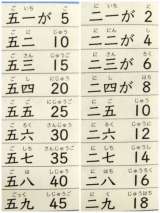 ご いち ご
五一が 5
ご に じゅう
五二 10
ご さん じゅうご
五三 15
ご し にじゅう
五四 20
ご ご にじゅうご
五五 25
ご ろく さんじゅう
五六 30
ご しち さんじゅうご
五七 35
ご は しじゅう
五八 40
ごっ く しじゅうご
五九 45
に いち に
二一が 2
に にん し
二二が 4
に さん ろく
二三が 6
に し はち
二四が 8
に ご じゅう
二五 10
に ろく じゅうに
二六 12
に しち じゅうし
二七 14
に はち じゅうろく
二八 16
に く じゅうはち
二九 18